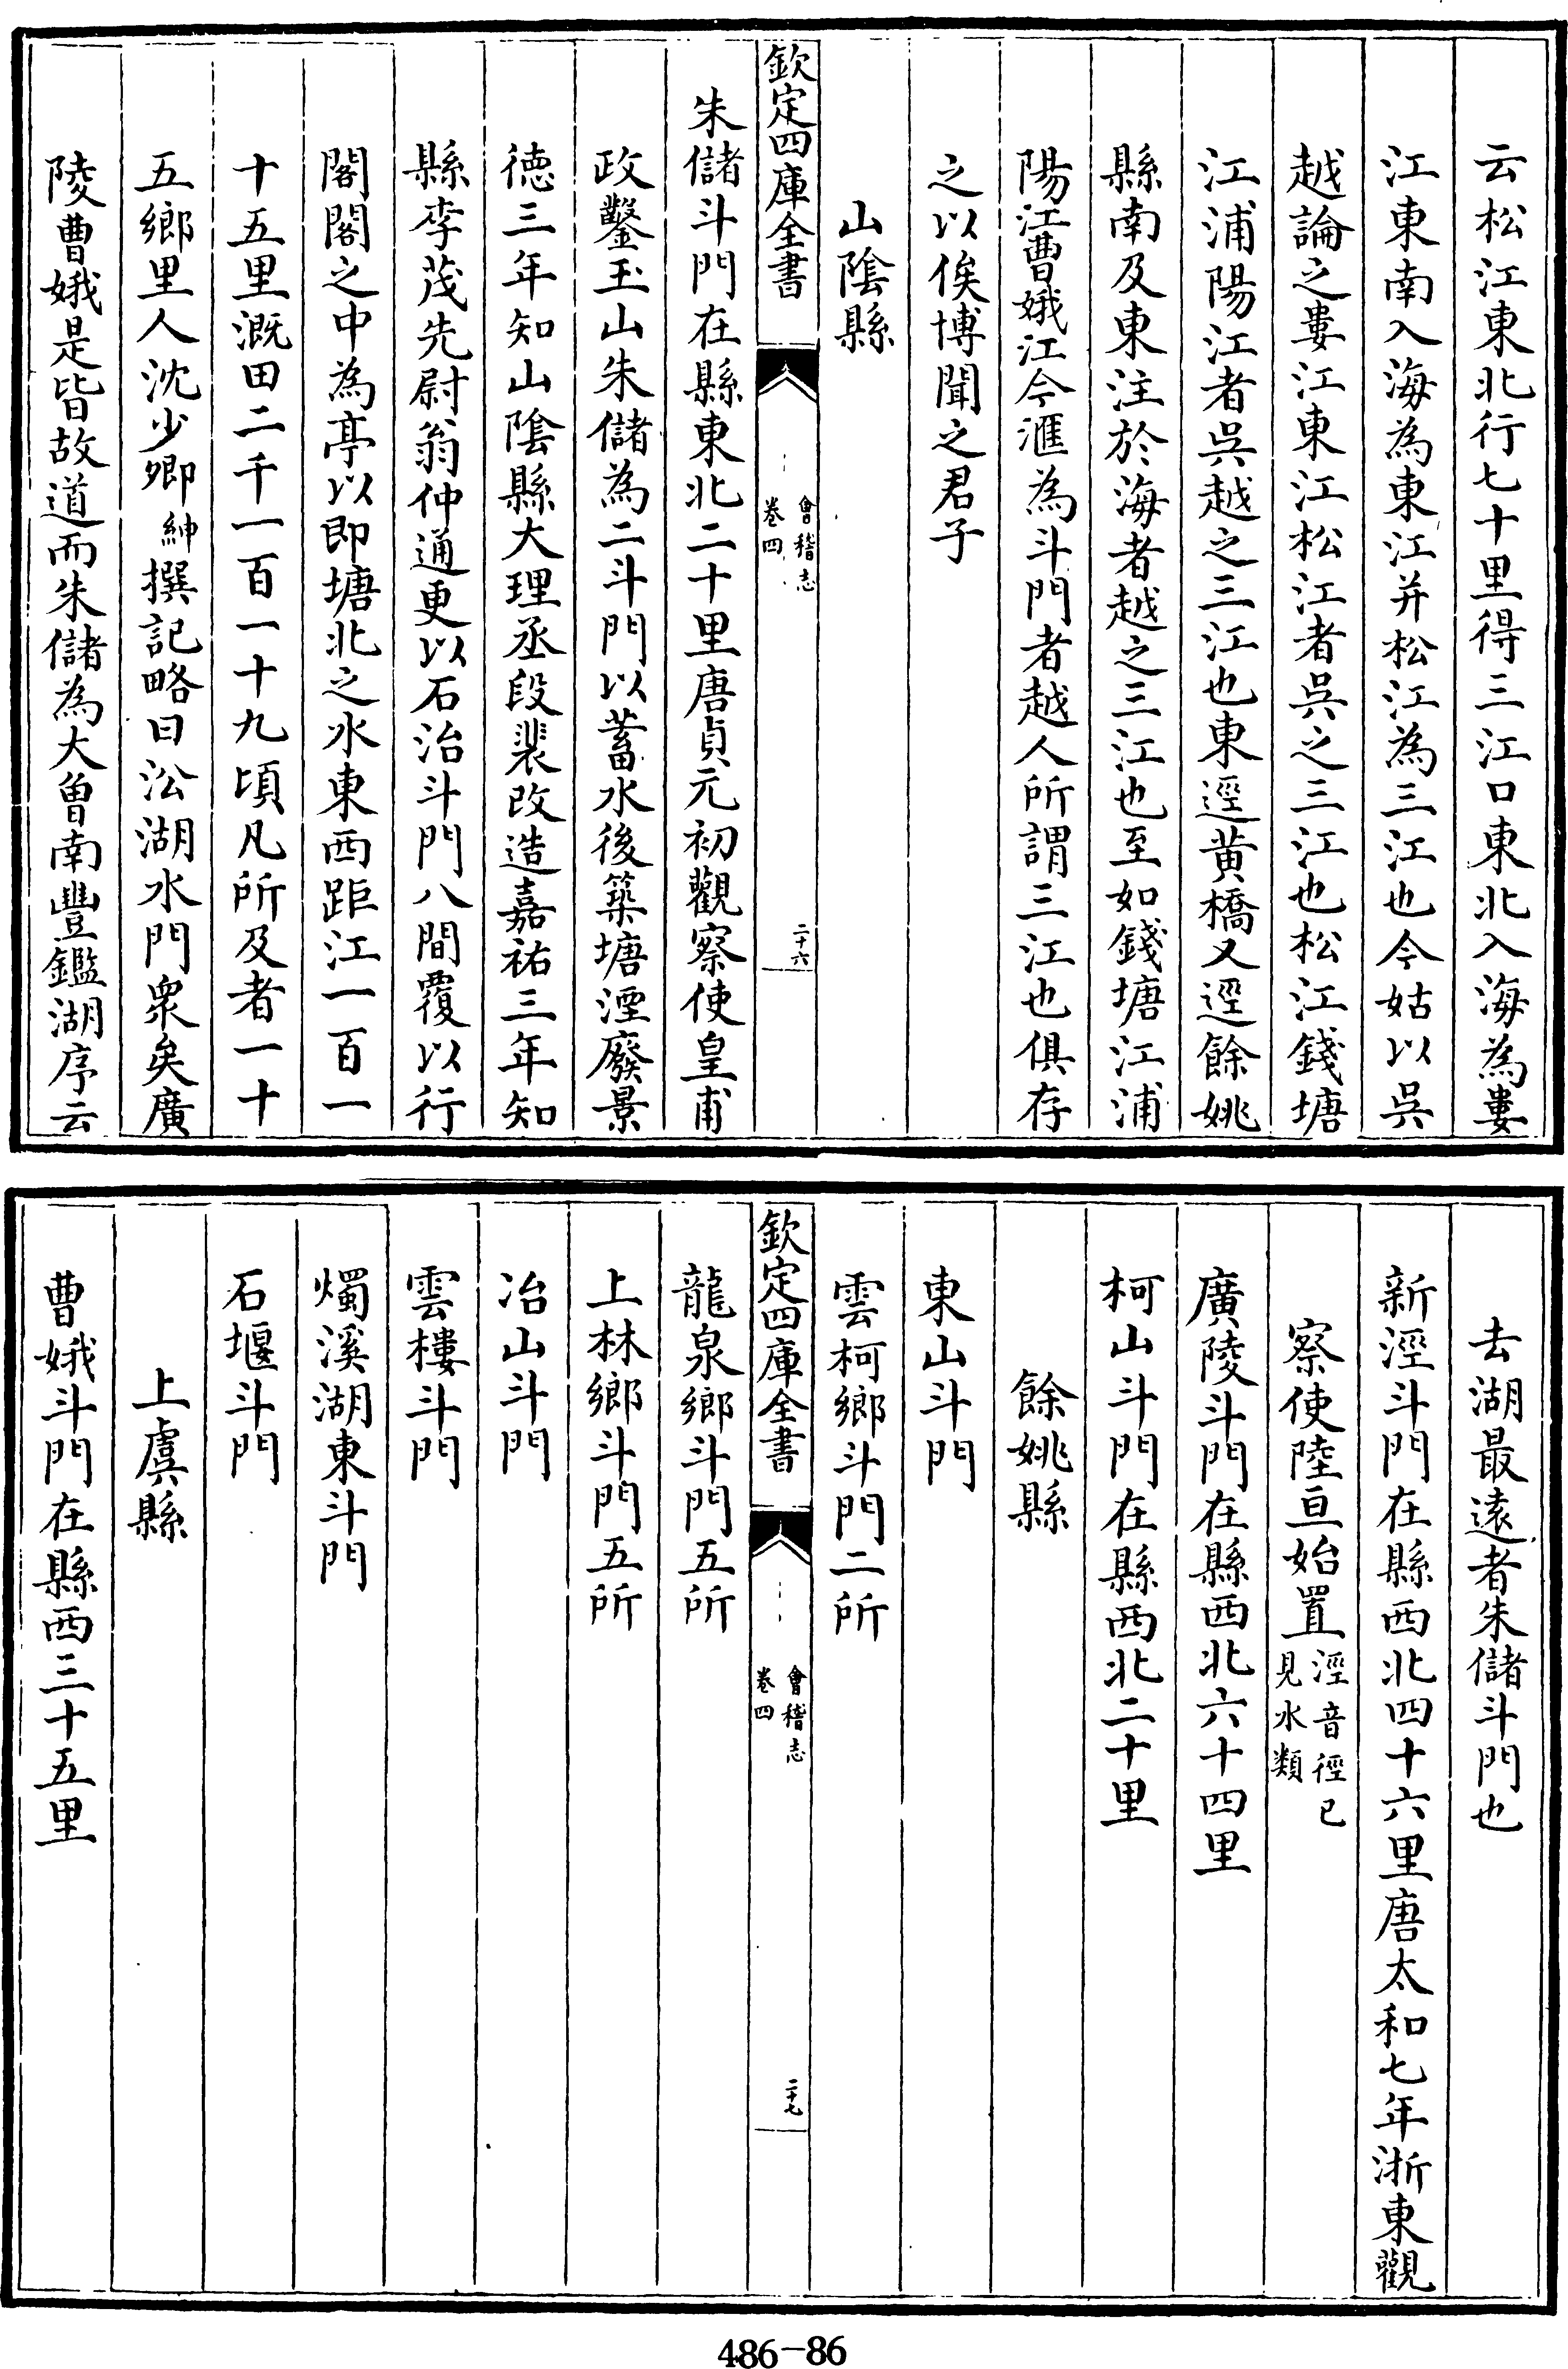 云松江東北行七十里得三江口東北入海為婁
江東南入海為東江并松江為三江也今姑以吳
越論之婁江東江松江者吳之三江也松江錢塘
江浦陽江者吳越之三江也東逕黄橋又逕餘姚
縣南及東注於海者越之三江也至如錢塘江浦
陽江曹娥江今滙為斗門者越人所謂三江也俱存
之以俟博聞之君子
山隂縣
欽定四庫全書
會稽志
卷四
二十六
朱儲斗門在縣東北二十里唐貞元初觀察使皇甫
政鑿玉山朱儲為二斗門以蓄水後築塘湮廢景
徳三年知山隂縣大理丞段裴改造嘉祐三年知
縣李茂先尉翁仲通更以石治斗門八間覆以行
閣閣之中為亭以即塘北之水東西距江一百一
十五里溉田二千一百一十九頃凡所及者一十
五鄉里人沈少卿紳撰記略曰㳂湖水門衆矣廣
陵曹娥是皆故道而朱儲為大曽南豐鑑湖序云
去湖最逺者朱儲斗門也
新涇斗門在縣西北四十六里唐太和七年浙東觀
察使陸亘始置涇音徑已
見水類
廣陵斗門在縣西北六十四里
柯山斗門在縣西北二十里
餘姚縣
東山斗門
雲柯鄉斗門二所
欽定四庫全書
會稽志
卷四
二十七
龍泉鄉斗門五所
上林鄉斗門五所
冶山斗門
雲樓斗門
燭溪湖東斗門
石堰斗門
上虞縣
曹娥斗門在縣西三十五里
486-86